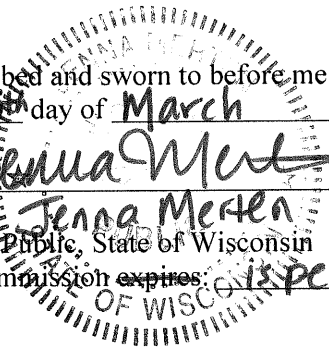 JENNA MERT
bed and sworn to before me
th day of March
Jenna Mert
Jenna Merten
Public, State of Wisconsin
mmission expires: is pe
STATE OF WISCON